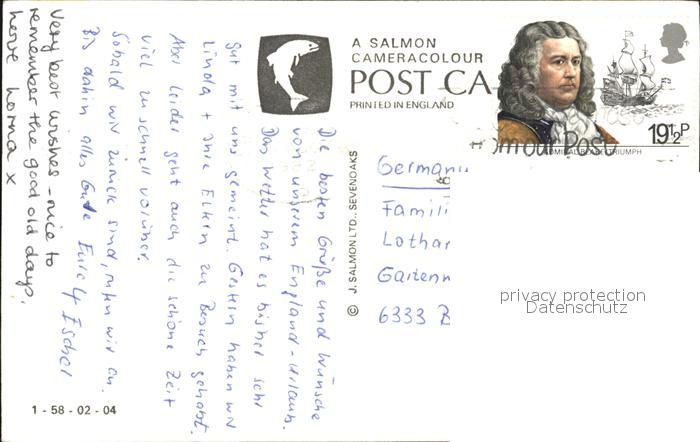 A SALMON
CAMERACOLOUR
POST CA
PRINTED IN ENGLAND
19½P
ADMIRAL BLAKE/TRIUMPH
Post
© J. SALMON LTD., SEVENOAKS
Die besten Grüße und Wünsche
von unserem England-Urlaub.
Das Wetter hat es bisher sehr
gut mit uns gemeint. Gestern haben wir
Linda + ihre Eltern zu Besuch gehabt.
Aber leider geht auch die schöne Zeit
viel zu schnell vorüber.
Sobald wir zurück sind, rufen wir an.
Bis dahin alles Gute Eure 4 Escher
Very best wishes - nice to
remember the good old days.
Love Lorna x
German
Famili
Lothar
Garten
6333 B
privacy protection
Datenschutz
1 - 58 - 02 - 04